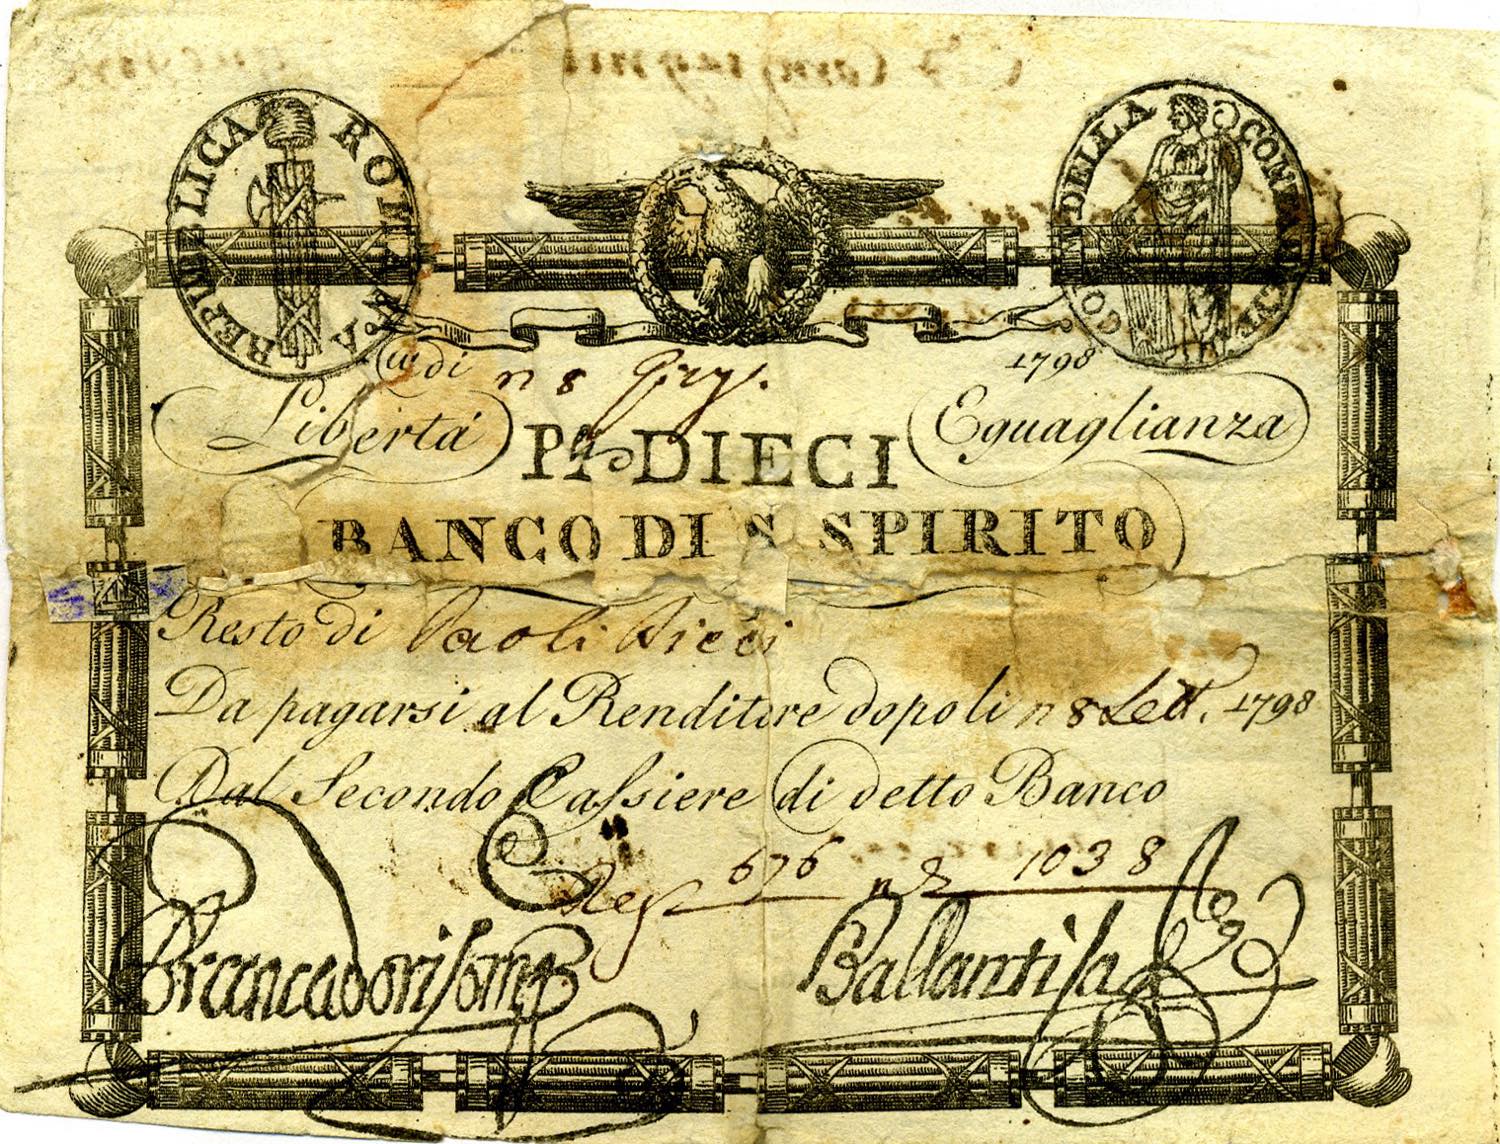 REPUBLICA ROMANA
DELLA
di n 8 1798
Libertá Eguaglianza
DIECI
BANCO DI S SPIRITO
Resto di Paoli dieci
Da pagarsi al Renditore dopo li n 8 Sett. 1798
Dal Secondo Caſsiere di detto Banco
Reg 676 n 1038